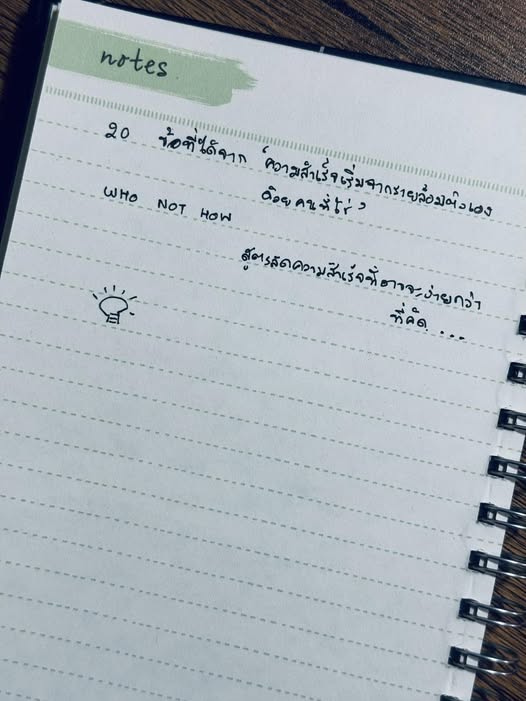 notes
20 ข้อที่ได้จาก 'ความสำเร็จเริ่มจากรายล้อมตัวเอง
ด้วยคนที่ใช่'
WHO NOT HOW
สูตรลัดความสำเร็จที่อาจจะง่ายกว่า
ที่คิด...